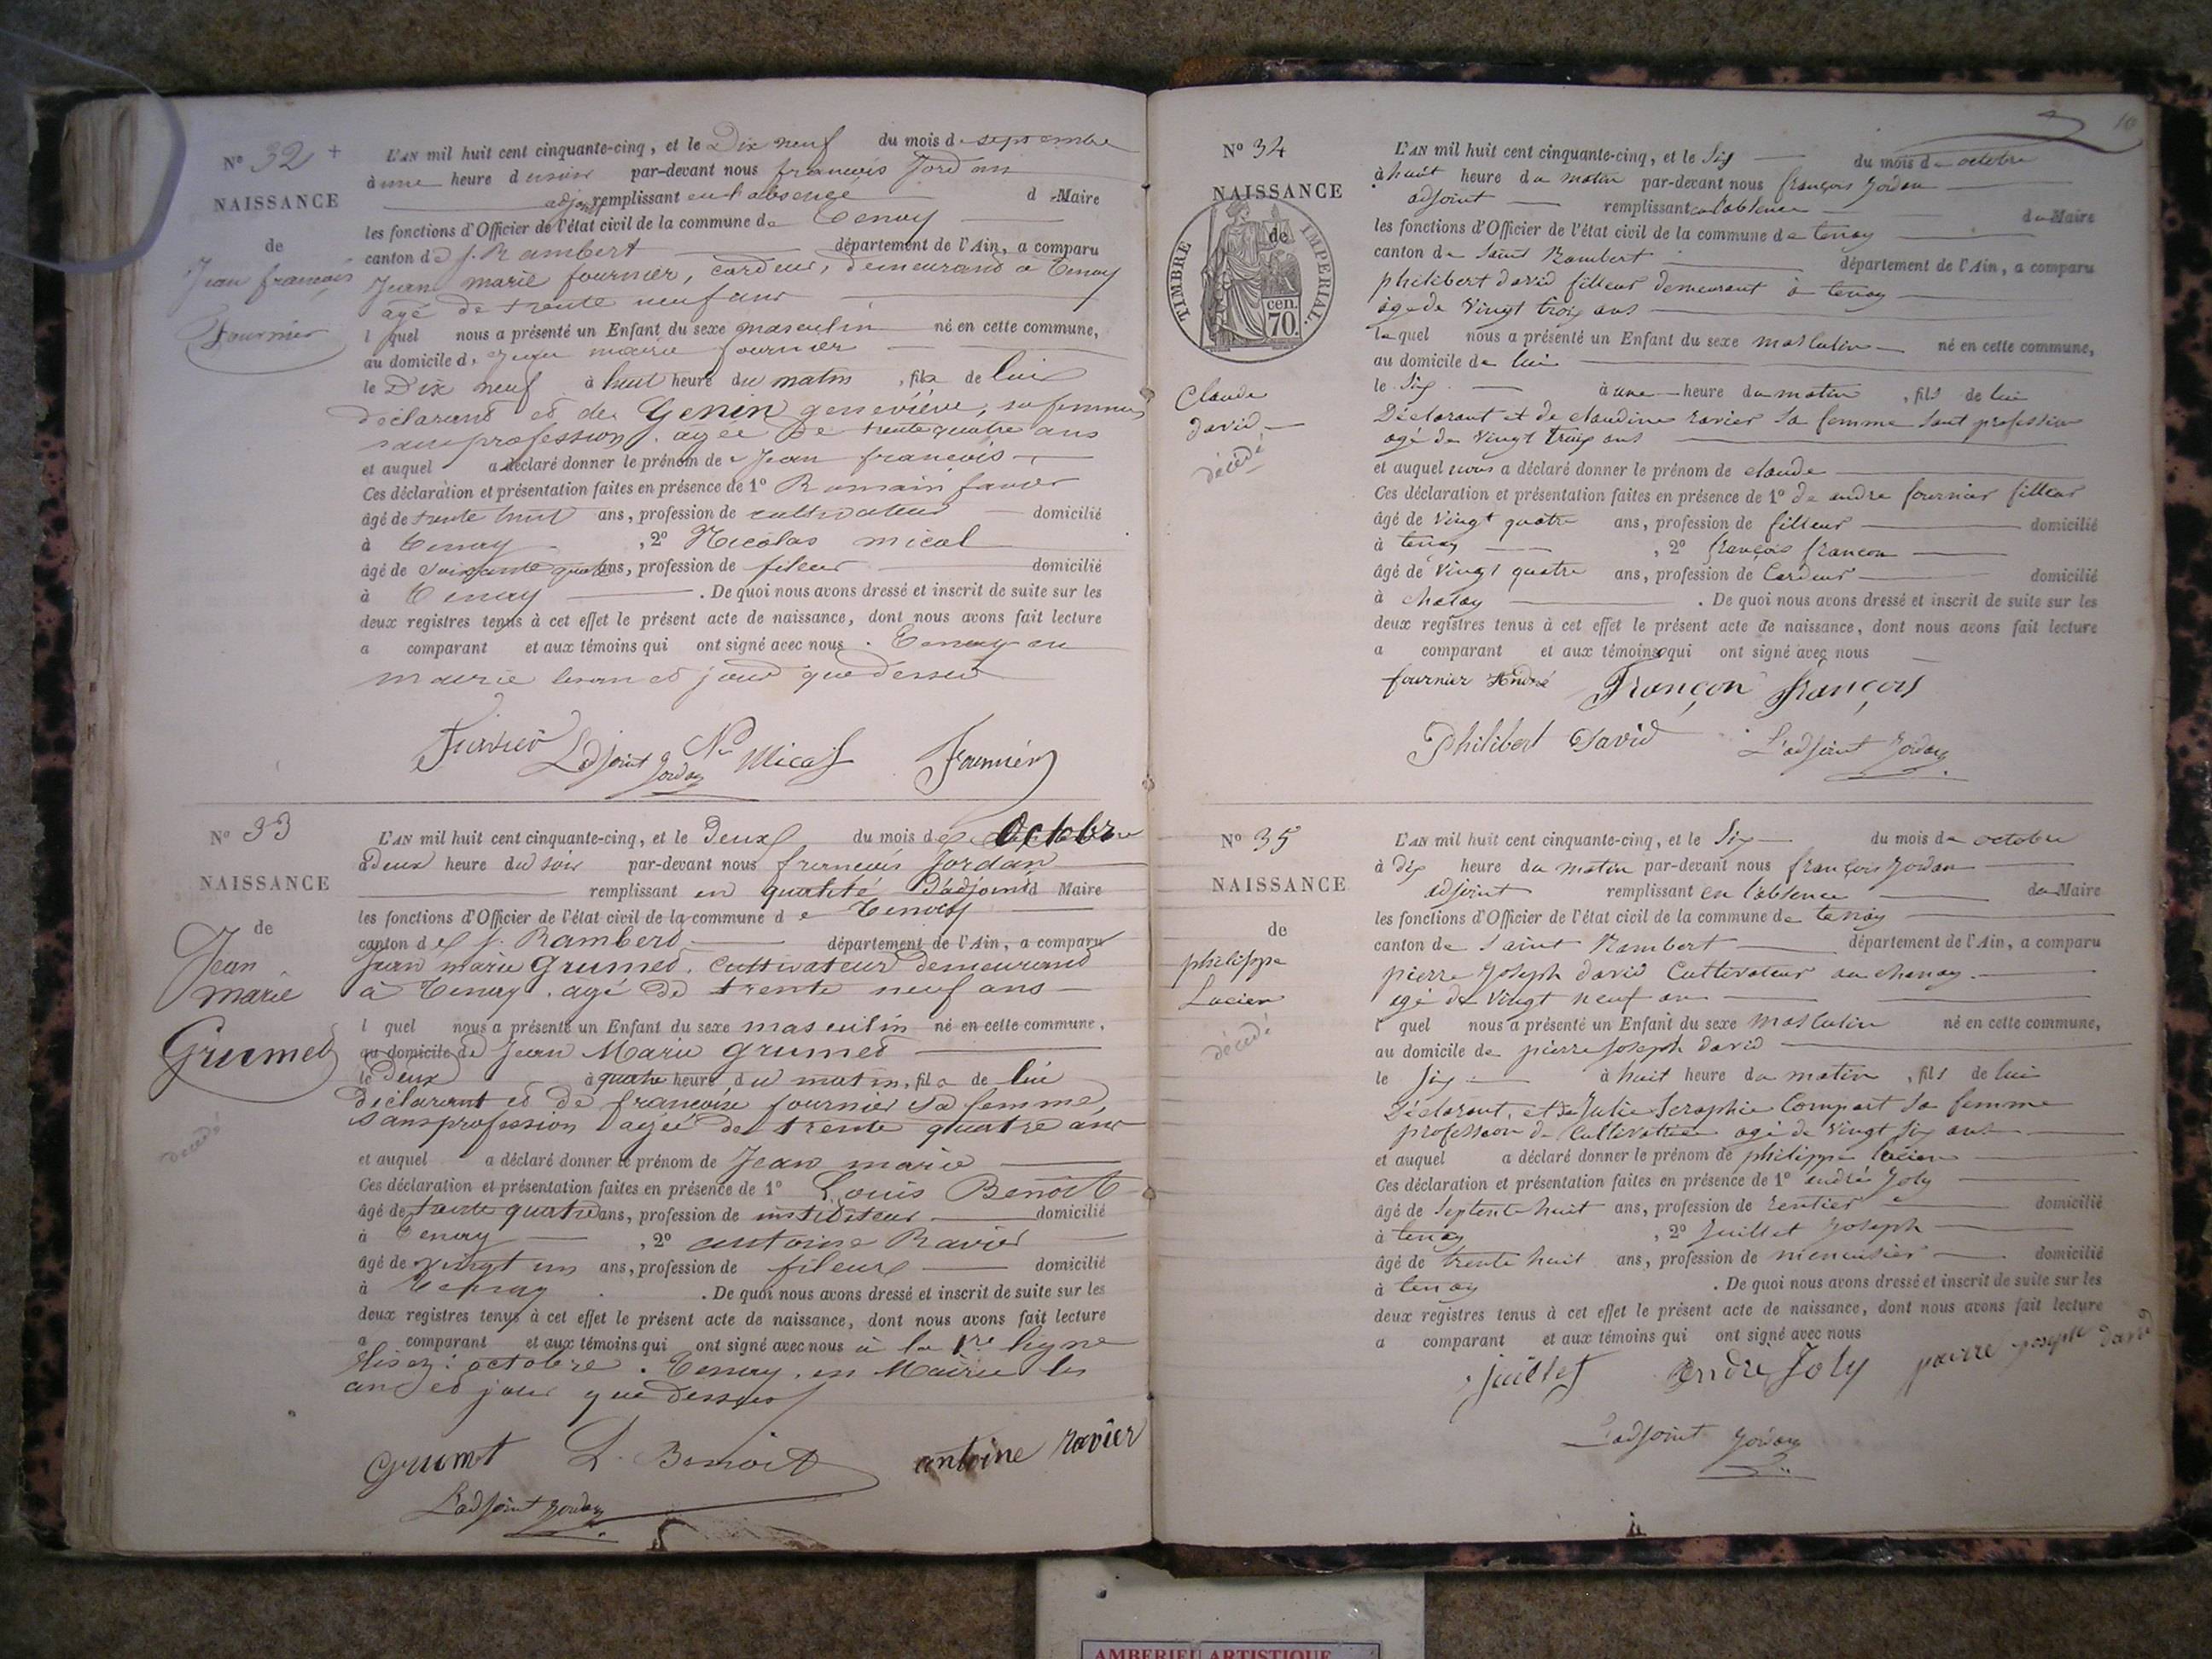 N° 32 +
NAISSANCE
de
Jean francois
Fournier
L'AN mil huit cent cinquante-cinq, et le Dix neuf du mois de septembre
à une heure du soir par-devant nous francois Jordan
adjoint remplissant en l'absence d Maire
les fonctions d'Officier de l'état civil de la commune de Tenay
canton de S. Rambert département de l'Ain, a comparu
Jean marie fournier, cardeur, demeurant à Tenay
agé de trente neuf ans
l quel nous a présenté un Enfant du sexe masculin né en cette commune,
au domicile d. Jean marie fournier
le Dix neuf à huit heure du matin, fils de lui
déclarant et de Genin geneviève, sa femme,
sans profession. agée de trente quatre ans
et auquel a déclaré donner le prénom de Jean francois
Ces déclaration et présentation faites en présence de 1° Romain
âgé de trente huit ans, profession de cultivateur domicilié
à Tenay, 2° Nicolas mical
âgé de soixante quatre ans, profession de fileur domicilié
à Tenay. De quoi nous avons dressé et inscrit de suite sur les
deux registres tenus à cet effet le présent acte de naissance, dont nous avons fait lecture
a comparant et aux témoins qui ont signé avec nous. Tenay en
mairie les an et jour que dessus
L'adjoint Jordan Nas Mical Fournier
N° 33
NAISSANCE
de
Jean
marie
Grumet
décédé
L'AN mil huit cent cinquante-cinq, et le Deux du mois de Octobre
à Deux heure du soir par-devant nous francois Jordan
remplissant en qualité d'adjoint d Maire
les fonctions d'Officier de l'état civil de la commune de Tenay
canton de S. Rambert département de l'Ain, a comparu
Jean marie Grumet. Cultivateur demeurant
à Tenay. agé de trente neuf ans
l quel nous a présenté un Enfant du sexe masculin né en cette commune,
au domicile de Jean Marie Grumet
le Deux à quatre heure du matin, fils de lui
declarant et de francoise fournier sa femme,
sans profession agée de trente quatre ans
et auquel a déclaré donner le prénom de Jean marie
Ces déclaration et présentation faites en présence de 1° Louis Benoit
âgé de trente quatre ans, profession de instituteur domicilié
à Tenay, 2° antoine Ravier
âgé de vingt un ans, profession de fileur domicilié
à Tenay. De quoi nous avons dressé et inscrit de suite sur les
deux registres tenus à cet effet le présent acte de naissance, dont nous avons fait lecture
a comparant et aux témoins qui ont signé avec nous à la 1re ligne
lisez: octobre. Tenay, en Mairie les
an et jour que dessus
Grumet L. Benoit antoine ravier
L'adjoint Jordan
10
N° 34
NAISSANCE
de
TIMBRE IMPERIAL.
cen.
70.
Claude
david
décédé
L'AN mil huit cent cinquante-cinq, et le Six du mois de octobre
à huit heure du matin par-devant nous françois Jordan
adjoint remplissant en l'absence du Maire
les fonctions d'Officier de l'état civil de la commune de tenay
canton de Saint Rambert département de l'Ain, a comparu
philibert david fileur demeurant à tenay
âgé de vingt trois ans
le quel nous a présenté un Enfant du sexe masculin né en cette commune,
au domicile de lui
le Six à une heure du matin, fils de lui
Déclarant et de claudine ravier sa femme sant profession
agé de vingt trois ans
et auquel nous a déclaré donner le prénom de claude
Ces déclaration et présentation faites en présence de 1° de andre fournier filleur
âgé de vingt quatre ans, profession de filleur domicilié
à tenay, 2° françois françon
âgé de vingt quatre ans, profession de Cardeur domicilié
à chalay. De quoi nous avons dressé et inscrit de suite sur les
deux registres tenus à cet effet le présent acte de naissance, dont nous avons fait lecture
a comparant et aux témoins qui ont signé avec nous
fournier André Françon françois
Philibert David L'adjoint Jordan
N° 35
NAISSANCE
de
philippe
Lucien
décédé
L'AN mil huit cent cinquante-cinq, et le Six du mois de octobre
à dix heure du matin par-devant nous françois Jordan
adjoint remplissant en l'absence du Maire
les fonctions d'Officier de l'état civil de la commune de tenay
canton de Saint Rambert département de l'Ain, a comparu
pierre Joseph david Cultivateur au chanay
agé de vingt neuf an
l quel nous a présenté un Enfant du sexe masculin né en cette commune,
au domicile de pierre Joseph david
le Six à huit heure du matin, fils de lui
Déclarant, et de Julie Seraphie Compart sa femme
profession de Cultivatrice agé de vingt six ans
et auquel a déclaré donner le prénom de philippe lucien
Ces déclaration et présentation faites en présence de 1° andré Joly
âgé de Septente huit ans, profession de rentier domicilié
à tenay, 2° Juillet Joseph
âgé de trente huit ans, profession de menuisier domicilié
à tenay. De quoi nous avons dressé et inscrit de suite sur les
deux registres tenus à cet effet le présent acte de naissance, dont nous avons fait lecture
a comparant et aux témoins qui ont signé avec nous
juillet André Joly pierre joseph david
L'adjoint Jordan
AMBERIEU ARTISTIQUE